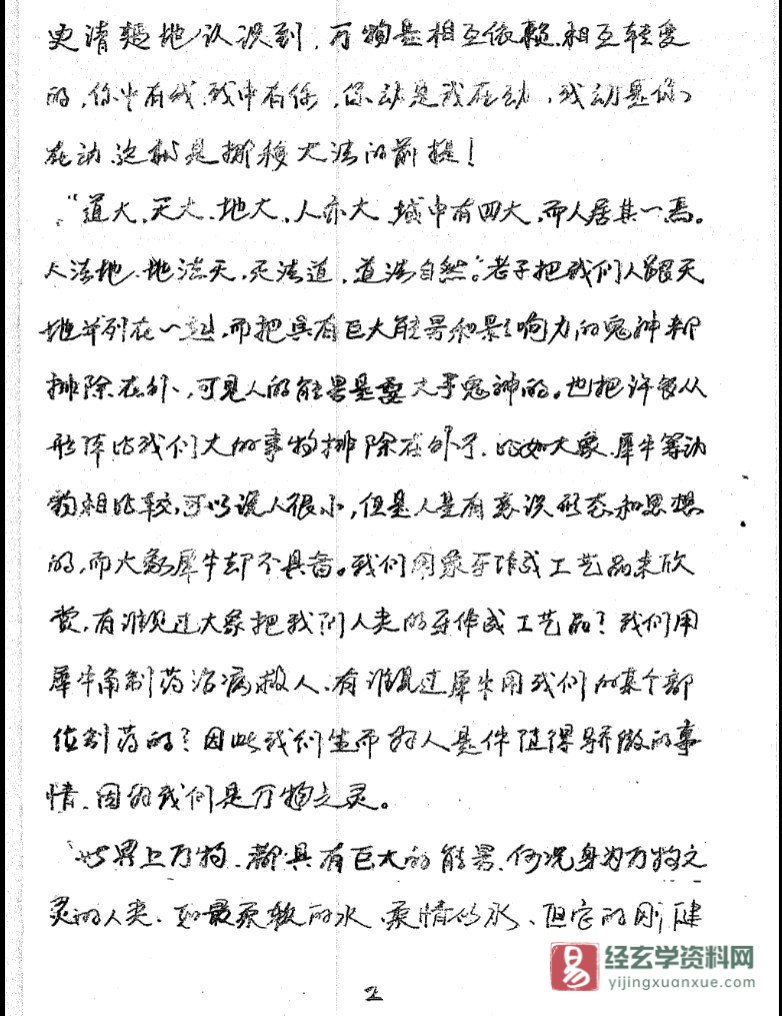 更清楚地认识到,万物是相互依赖.相互转变
的,你中有我.我中有你,你动是我在动,我动是你
在动.这就是挪移大法的前提!
"道大、天大、地大、人亦大.域中有四大,而人居其一焉。
人法地.地法天,天法道,道法自然"。老子把我们人跟天
地并列在一起,而把具有巨大能量和影响力的鬼神都
排除在外、可见人的能量是要大于鬼神的。也把许多从
形体比我们大的事物排除在外了.比如大象.犀牛等动
物相比较,可以说人很小,但是人是有意识形态和思想
的,而大象犀牛却不具备。我们用象牙作成工艺品来欣
赏,有谁见过大象把我们人类的牙作成工艺品?我们用
犀牛角制药治病救人、有谁见过犀牛用我们的某个部
位制药的?因此我们生而为人是件值得骄傲的事
情.因为我们是万物之灵。
世界上万物.都具有巨大的能量.何况身为万物之
灵的人类.如最柔软的水、柔情的水、但它的刚健
2
易 经玄学资料网
yijingxuanxue.com